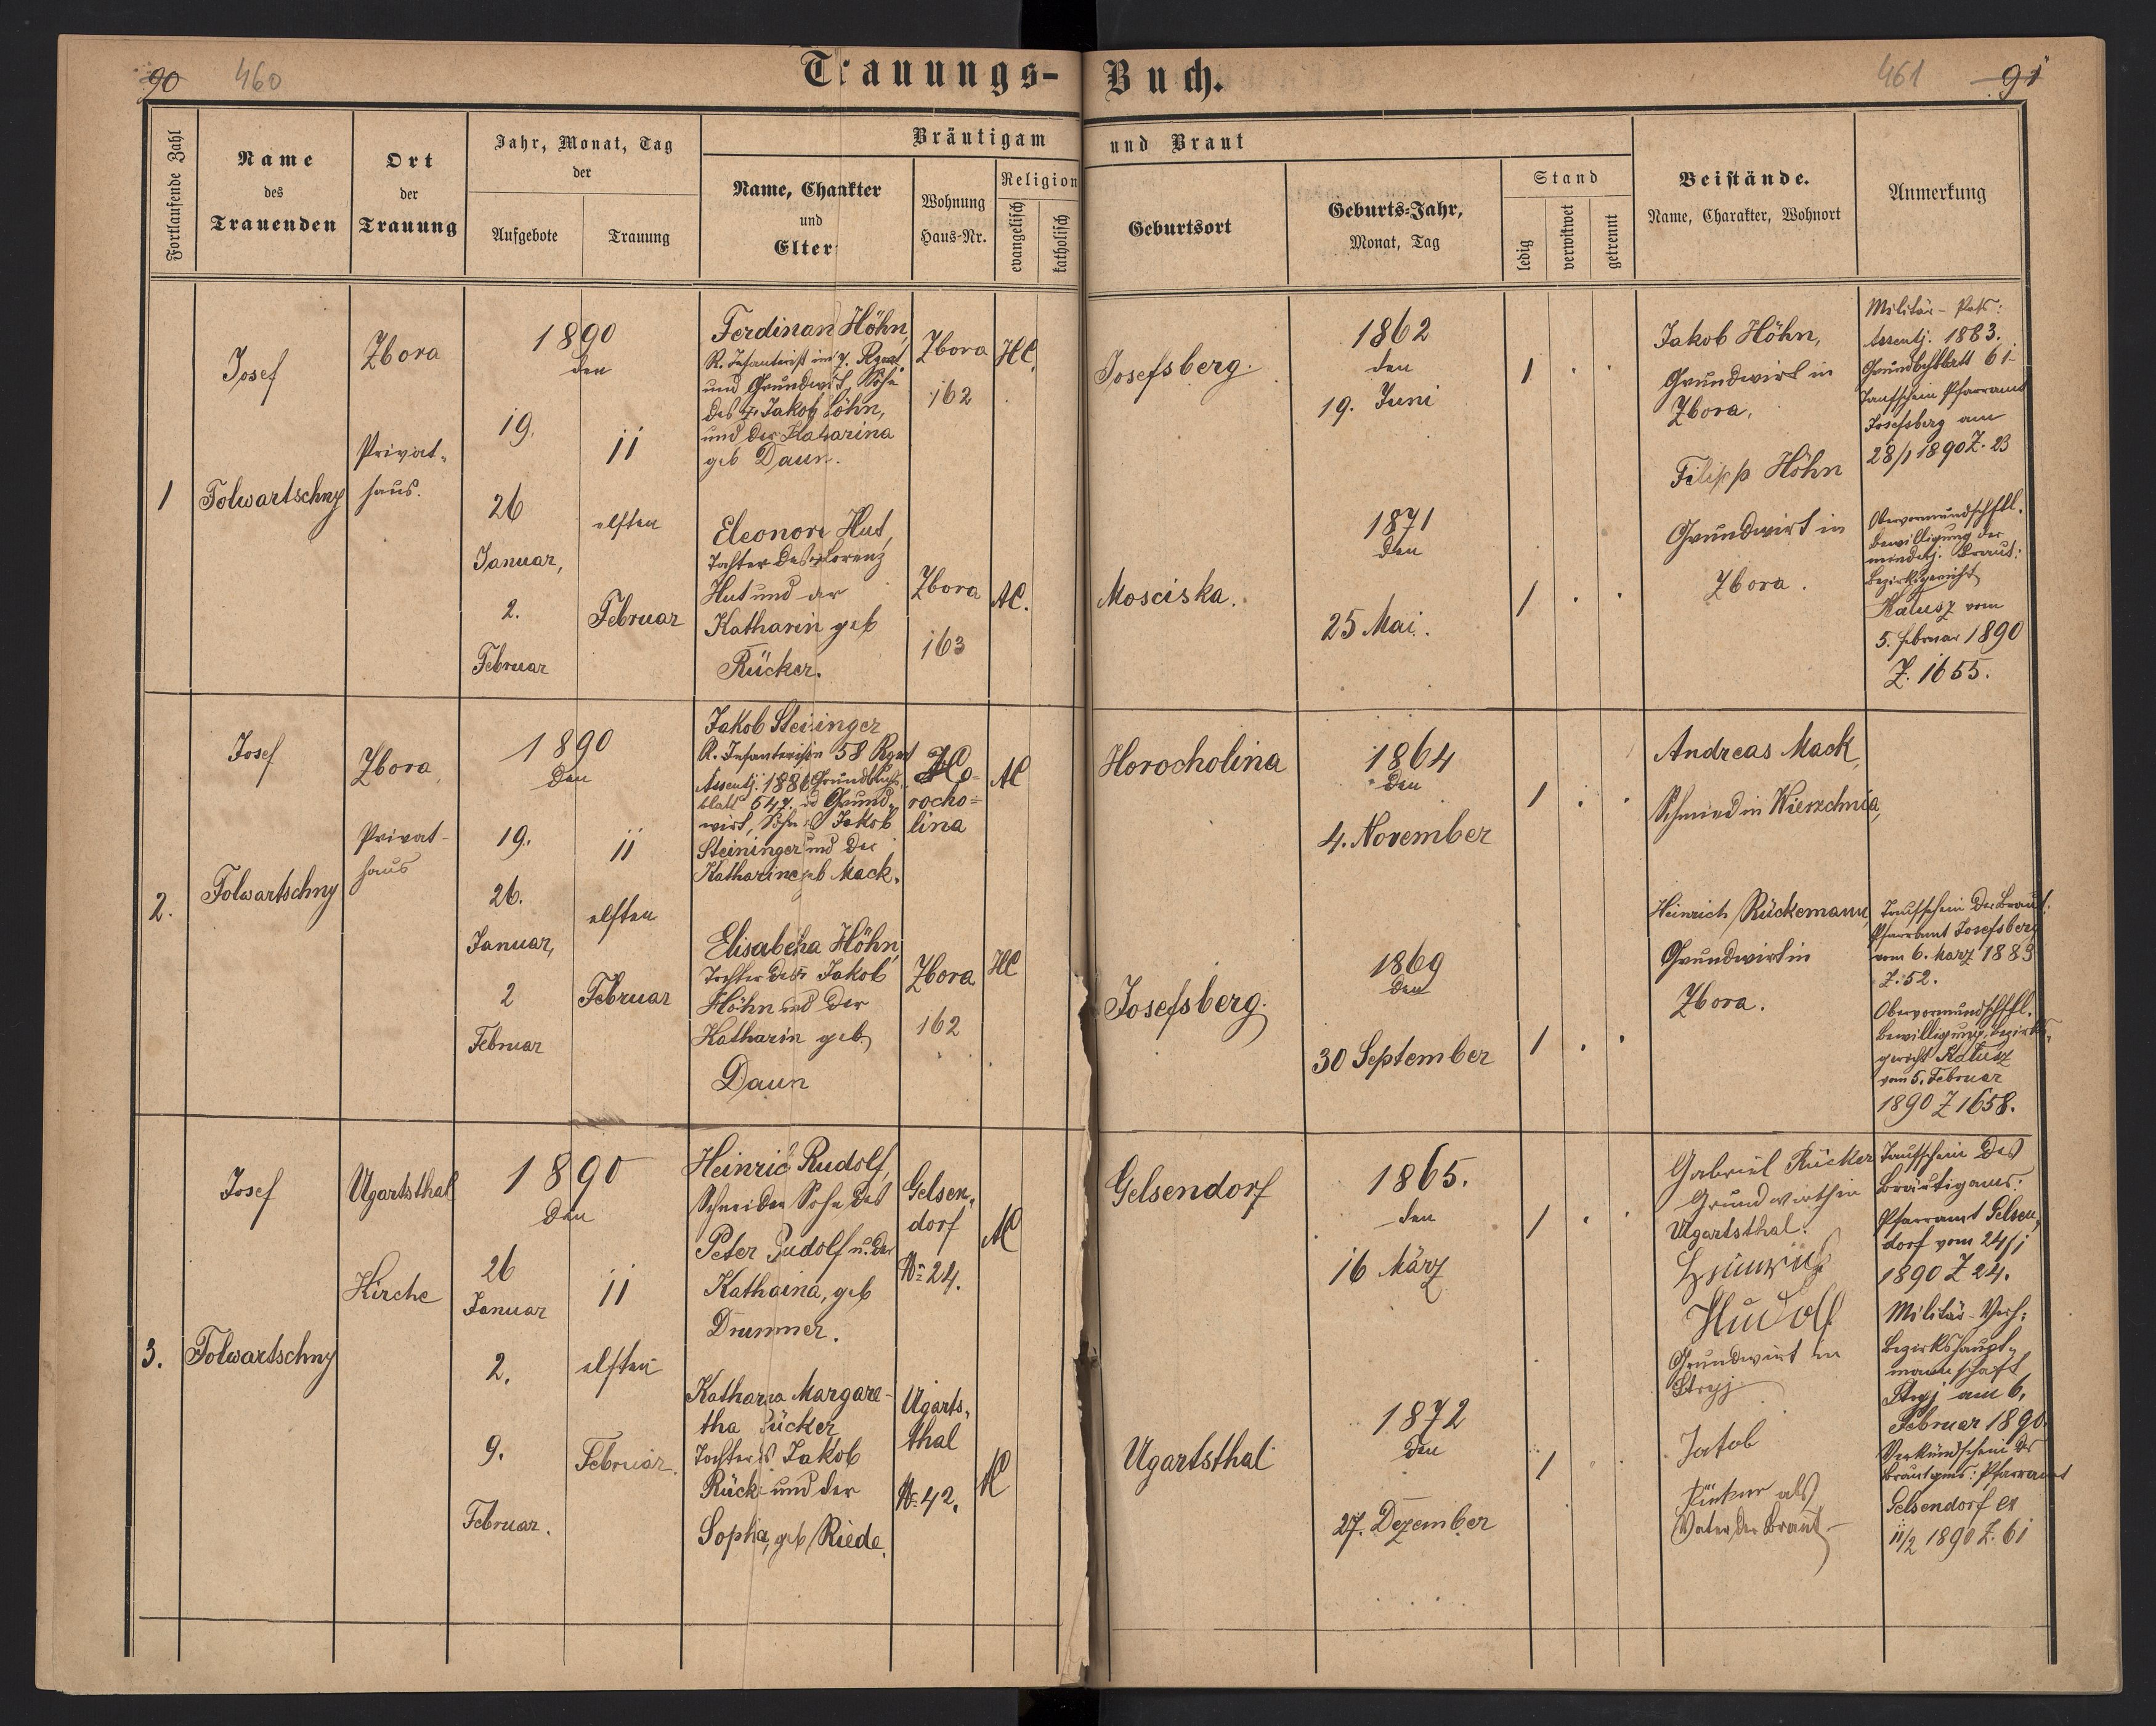 90 460
Trauungs-Buch.
461 91
Fortlaufende Zahl
Name
des
Trauenden
Ort
der
Trauung
Jahr, Monat, Tag
der
Aufgebote
Trauung
Bräutigam
und Braut
Name, Charakter
und
Elter
Wohnung
Haus-Nr.
Religion
evangelisch
katholisch
Geburtsort
Geburts-Jahr,
Monat, Tag
Stand
ledig
verwitwet
getrennt
Beistände.
Name, Charakter, Wohnort
Anmerkung
1
Josef
Folwartschny
Zbora
Privat-
haus.
1890
den
19.
26
Januar,
2.
Februar
11
elften
Februar
Ferdinan Höhn,
R. Infanterist im 7. Rgmt
und Grundwirt, Sohn
des Jakob Höhn,
und der Katarina
geb Daun.
Zbora
162
HC.
Josefsberg.
1862
den
19. Juni
1
Eleonore Hut,
Tochter des Lorenz
Hut und der
Katharin geb
Rücker.
Zbora
163
AC.
Mosciska.
1871
den
25 Mai.
1
Jakob Höhn,
Grundwirt in
Zbora.
Filipp Höhn
Grundwirt in
Zbora.
Militär-
Assentj. 1883.
Grundbchblatt 61
Taufschein Pfarramt
Josefsberg am
28/1 1890 Z. 23
Obervormundschftl.
Bewilligung der
mindrj. Braut:
Bezirksgericht
Kalusz vom
5. Februar 1890
Z. 1655.
2.
Josef
Folwartschny
Zbora,
Privat-
haus
1890
den
19.
26.
Januar,
2
Februar
11
elften
Februar
Jakob Steininger
R. Infanterist 58 Rgmt
Assentj. 1886 Grundbuchs-
blatt 547. Grund-
wirt, Sohn Jakob
Steininger und der
Katharine geb Mack.
Ho-
rocho-
lina
AC
Horocholina
1864
den
4. November
1
Elisabetha Höhn,
Tochter des Jakob
Höhn und der
Katharin geb
Daun
Zbora
162
HC
Josefsberg.
1869
den
30 September
1
Andreas Mack,
Schmied in Wierzchnia,
Heinrich Rückemann,
Grundwirt in
Zbora.
Taufschein der Braut:
Pfarramt Josefsberg
vom 6. März 1889
Z. 52.
Obervormundschftl.
Bewilligung Bezirks-
gericht Kalusz
vom 5. Februar
1890 Z 1658.
3.
Josef
Folwartschny
Ugartsthal
Kirche
1890
den
26
Januar
2.
9.
Februar.
11
elften
Februar.
Heinrich Rudolf,
Schneider Sohn des
Peter Rudolf u. der
Kathaina, geb
Drummer.
Gelsen-
dorf
No 24.
AC
Gelsendorf
1865.
den
16 März
1
Katharina Margare-
tha Rücker
Tochter Jakob
Rücke und der
Sophia, geb Riede.
Ugarts-
thal
No 42.
AC
Ugartsthal
1872
den
27. Dezember
1
Gabriel Rücker
Grundwirth in
Ugartsthal.
Heinrich
Rudolf
Grundwirt in
Stryj
Jakob
Rücker als
Vater der Braut
Taufschein des
Bräutigams:
Pfarramt Gelsen-
dorf vom 24/1
1890 Z 24.
Militär-
Bezirkshaupt-
mannschaft
Stryj am 6.
Februar 1890.
Verkündschein des
Bräutgms: Pfarramt
Gelsendorf
11/2 1890 Z. 61